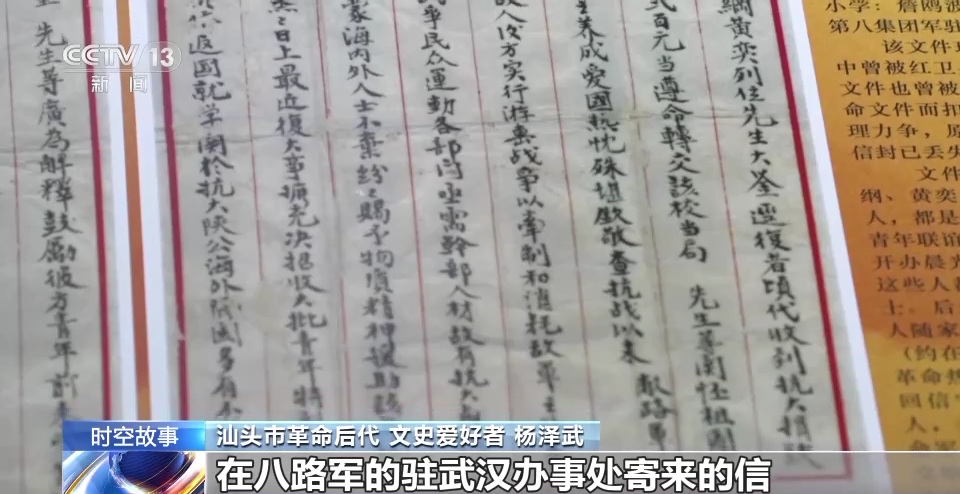 CCTV 13
新闻
綱黄奕列位先生大鉴逕復者頃代收到抗大捐款
弍百元当遵命轉交該校当局 先生等関怪祖國
养成爱國热忱殊堪欽敬查抗战以来 敝路軍
敌人后方实行游击战争以牽制和消耗敌軍主
战争民众運動各部门亟需幹部人材故有抗大
蒙海内外人士不棄紛々賜予物质精神援助
日上最近復大事擴充决招收大批青年特
返國就学関於抗大陕公海外多有不
先生等廣為解釋鼓勵彼方青年前来
小学：詹鸥波
第八集团军驻
该文件
中曾被红卫
文件也曾被
命文件而扣
理力争，原
信封已丢失
文件
纲、黄奕
人，都是
青年联谊
开办晨光
这些人都
士。后
人随家
（约在
革命热
回信”
人，
时空故事
汕头市革命后代 文史爱好者 杨泽武
在八路军的驻武汉办事处寄来的信